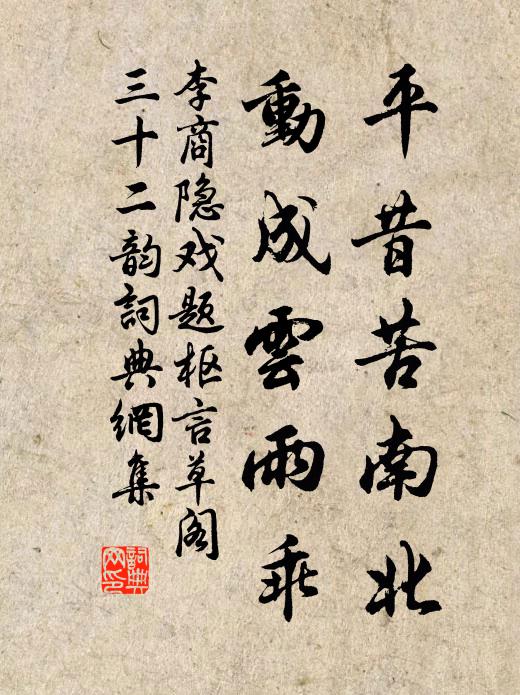 平昔苦南北
動成雲雨乖
李商隐戏题枢言草阁
三十二韵詞典網集
詞典网印